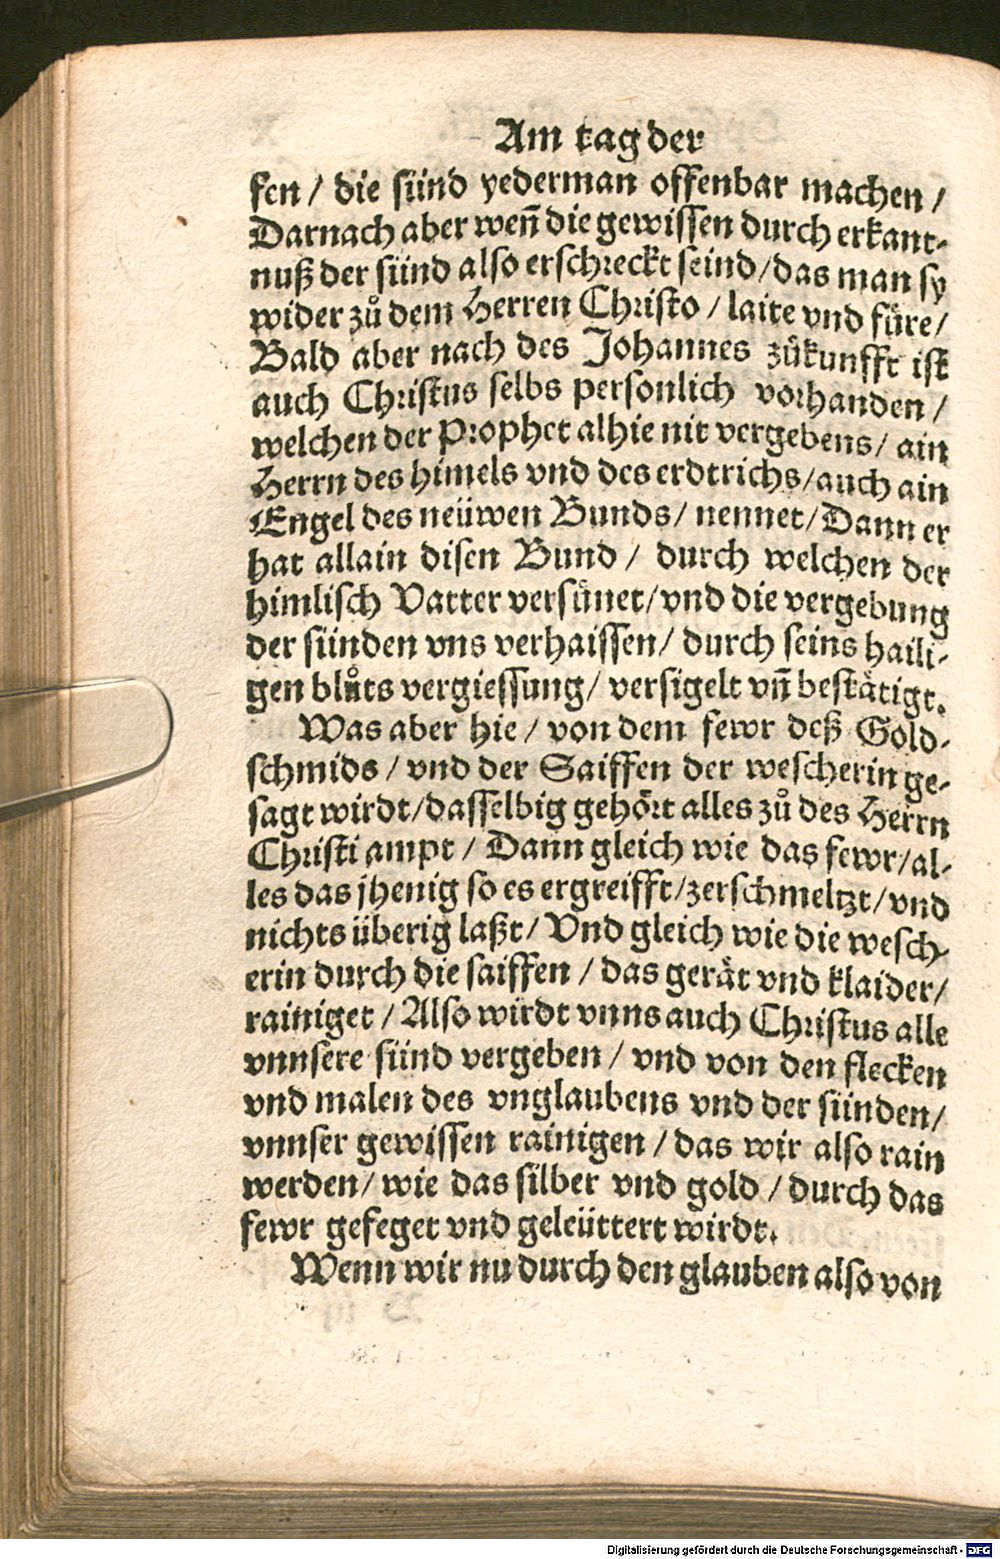 Am tag der
sen / die sünd yederman offenbar machen /
Darnach aber weñ die gewissen durch erkant-
nuß der sünd also erschreckt seind/das man sy
wider zů dem Herren Christo / laite vnd füre/
Bald aber nach des Johannes zůkunfft ist
auch Christus selbs personlich vorhanden /
welchen der Prophet alhie nit vergebens/ ain
Herrn des himels vnd des erdtrichs/auch ain
Engel des neüwen Bunds/ nennet/Dann er
hat allain disen Bund / durch welchen der
himlisch Vatter versünet/vnd die vergebung
der sünden vns verhaissen/ durch seins haili-
gen blůts vergiessung/ versigelt vñ bestätigt.
Was aber hie / von dem fewr deß Gold-
schmids / vnd der Saiffen der wescherin ge-
sagt wirdt/dasselbig gehört alles zů des Herrn
Christi ampt / Dann gleich wie das fewr/al-
les das jhenig so es ergreifft/zerschmeltzt/vnd
nichts überig laßt/ Vnd gleich wie die wesch-
erin durch die saiffen / das gerät vnd klaider/
rainiget / Also wirdt vnns auch Christus alle
vnnsere sünd vergeben / vnd von den flecken
vnd malen des vnglaubens vnd der sünden/
vnnser gewissen rainigen / das wir also rain
werden/ wie das silber vnd gold / durch das
fewr gefeget vnd geleüttert wirdt.
Wenn wir nu durch den glauben also von
Digitalisierung gefördert durch die Deutsche Forschungsgemeinschaft - DFG